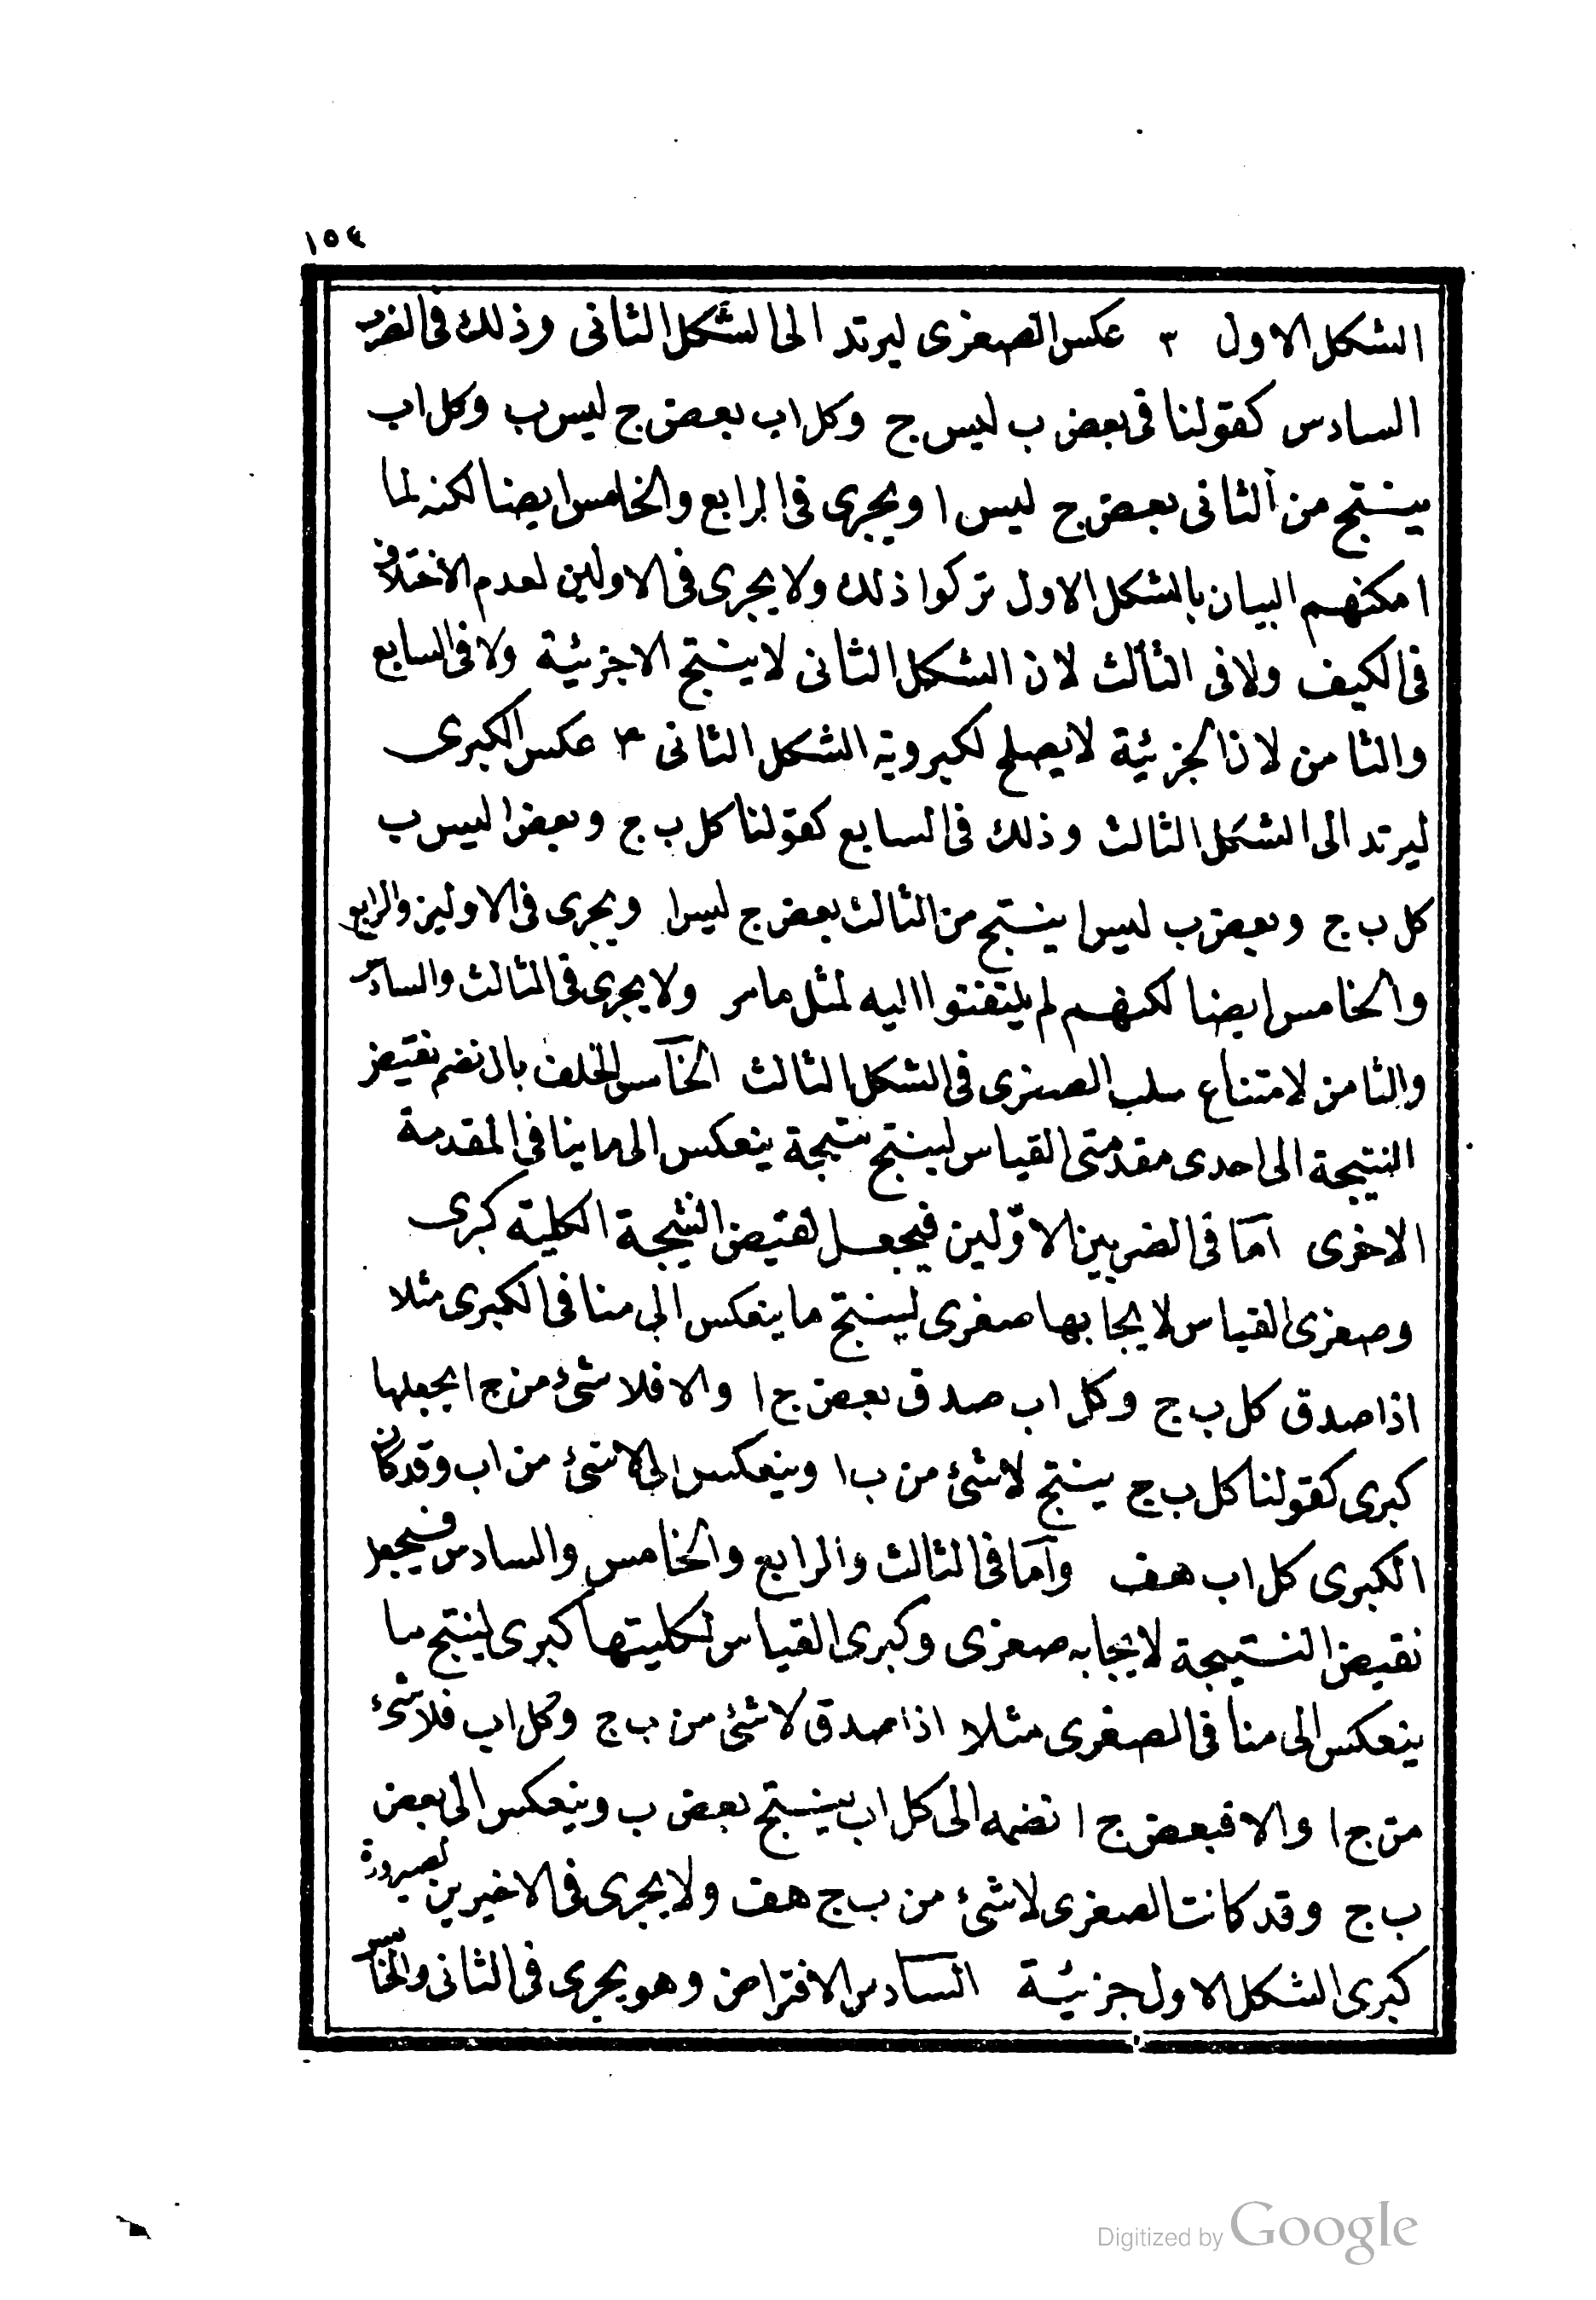 ١٥٤
الشكل الاول ٣ عكس الصغرى ليرتد الى الشكل الثانى وذلك فى الضرب
السادس كقولنا فى بعض ب ليس ج وكل اب بعض ج ليس ب وكل اب
ينتج من الثانى بعض ج ليس ا ويجرى فى الرابع والخامس ايضا لكنه لما
امكنهم البيان بالشكل الاول تركوا ذلك ولا يجرى فى الاولين لعدم الاختلاف
فى الكيف ولا فى الثالث لان الشكل الثانى لا ينتج الا جزئية ولا فى السابع
والثامن لان الجزئية لا يصلح لكبروية الشكل الثانى ٤ عكس الكبرى
ليرتد الى الشكل الثالث وذلك فى السابع كقولنا كل ب ج وبعض ا ليس ب
كل ب ج وبعض ب ليس ا ينتج من الثالث بعض ج ليس ا ويجرى فى الاولين والرابع
والخامس ايضا لكنهم لم يلتفتوا اليه لمثل ما مر ولا يجرى فى الثالث والسادس
والثامن لامتناع سلب الصغرى فى الشكل الثالث الخامس الخلف بان نضم نقيض
النتيجة الى احدى مقدمتى القياس لينتج نتيجة ينعكس الى ما ينافى المقدمة
الاخرى اما فى الضربين الاولين فيجعل نقيض النتيجة الكلية كبرى
وصغرى القياس لايجابها صغرى لينتج ما ينعكس الى منافى الكبرى مثلا
اذا صدق كل ب ج وكل اب صدق بعض ج ا والا فلا شئ من ج ا يجعلها
كبرى كقولنا كل ب ج ينتج لا شئ من ب ا وينعكس الى لا شئ من اب وقد كان
الكبرى كل اب هف واما فى الثالث والرابع والخامس والسادس فيجعل
نقيض النتيجة لايجابه صغرى وكبرى القياس لكليتها كبرى لينتج ما
ينعكس الى منافى الصغرى مثلا اذا صدق لا شئ من ب ج وكل اب فلا شئ
من ج ا والا فبعض ج ا نضمه الى كل اب ينتج بعض ب وينعكس الى بعض
ب ج وقد كانت الصغرى لا شئ من ب ج هف ولا يجرى فى الاخيرين لصيرورة
كبرى الشكل الاول جزئية السادس الافتراض وهو يجرى فى الثانى والخامس
Digitized by Google